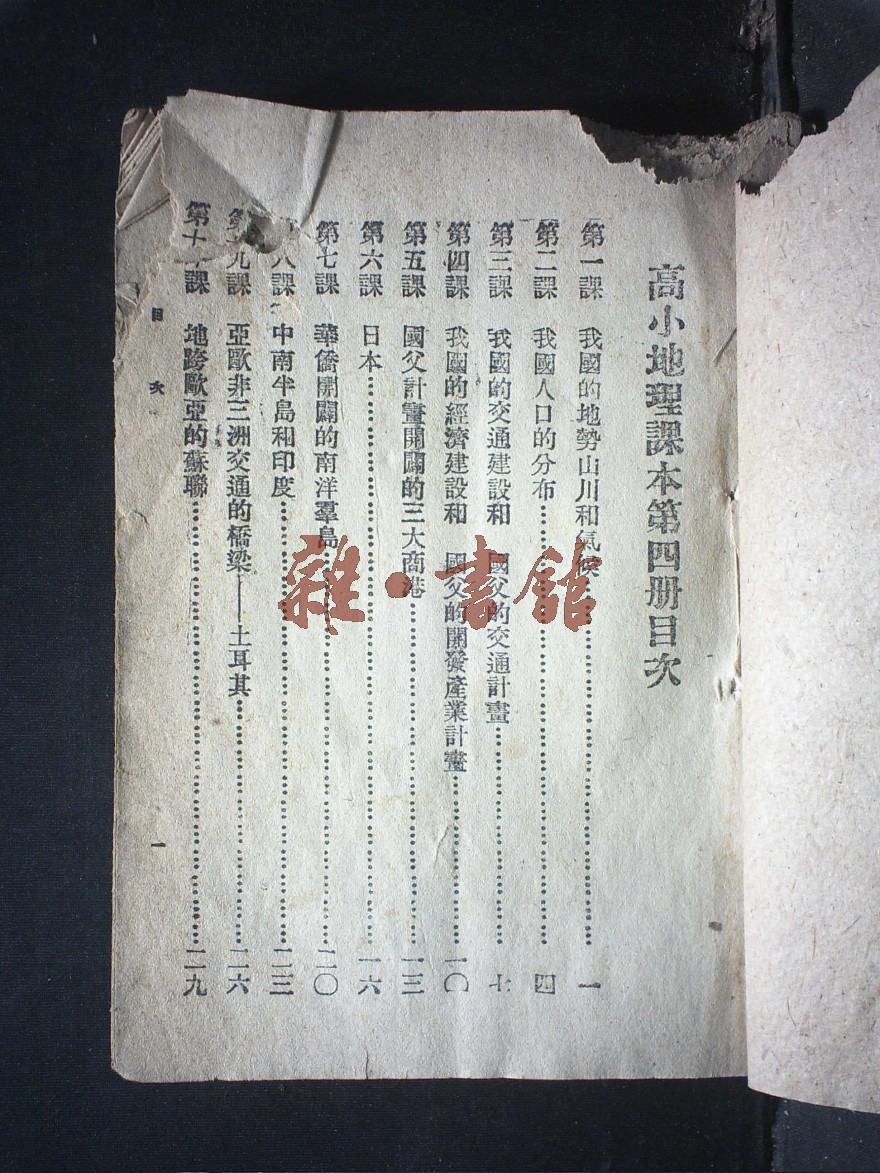 高小地理課本第四册目次
第一課 我國的地勢山川和氣候 一
第二課 我國人口的分布 四
第三課 我國的交通建設和 國父的交通計畫 七
第四課 我國的經濟建設和 國父的開發產業計畫 一〇
第五課 國父計畫開闢的三大商港 一三
第六課 日本 一六
第七課 華僑開闢的南洋羣島 二〇
八課 中南半島和印度 二三
第九課 亞歐非三洲交通的橋梁——土耳其 二六
第十課 地跨歐亞的蘇聯 二九
目次
一
雜·書館